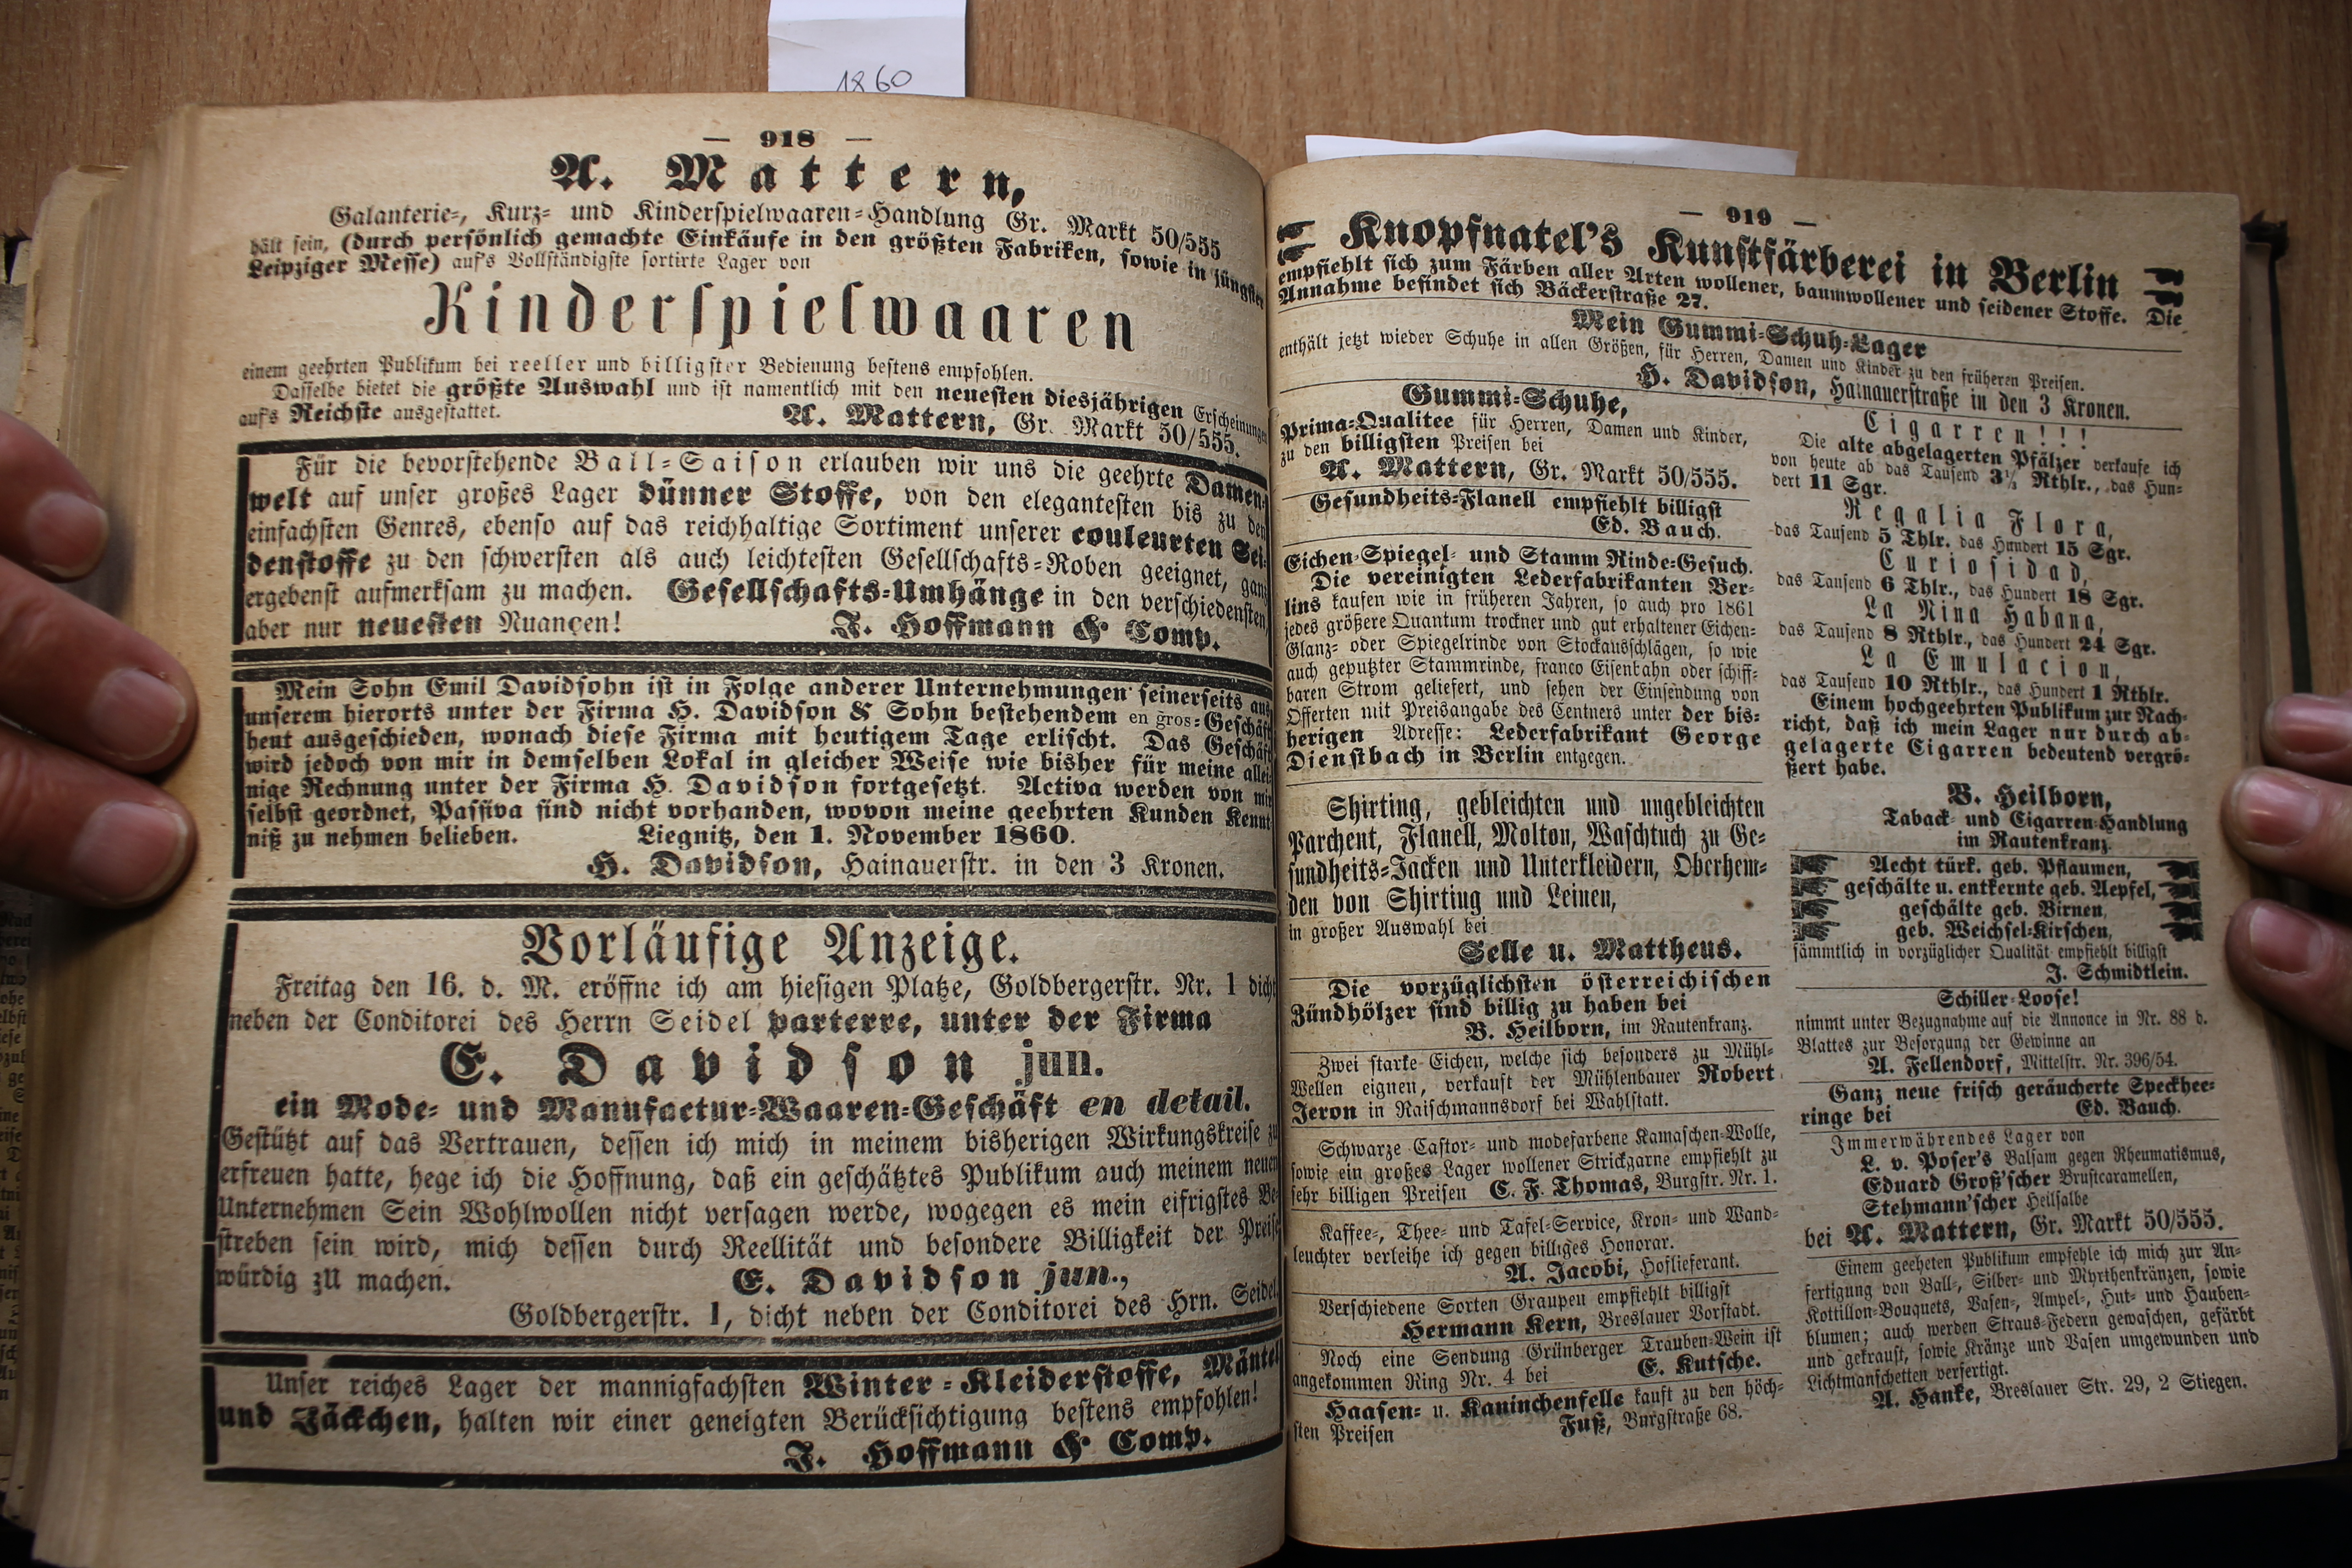 1860
— 918 —
A. Mattern,
Galanterie-, Kurz- und Kinderspielwaaren-Handlung Gr. Markt 50/555
hält sein, (durch persönlich gemachte Einkäufe in den größten Fabriken, sowie in jüngster
Leipziger Messe) auf's Vollständigste sortirte Lager von
Kinderspielwaaren
einem geehrten Publikum bei reeller und billigster Bedienung bestens empfohlen.
Dasselbe bietet die größte Auswahl und ist namentlich mit den neuesten diesjährigen Erscheinungen
auf's Reichste ausgestattet.
A. Mattern, Gr. Markt 50/555.
Für die bevorstehende Ball-Saison erlauben wir uns die geehrte Damen-
welt auf unser großes Lager dünner Stoffe, von den elegantesten bis zu den
einfachsten Genres, ebenso auf das reichhaltige Sortiment unserer couleurten Sei-
denstoffe zu den schwersten als auch leichtesten Gesellschafts-Roben geeignet, ganz
ergebenst aufmerksam zu machen. Gesellschafts-Umhänge in den verschiedensten,
aber nur neuesten Nuançen!
J. Hoffmann & Comp.
Mein Sohn Emil Davidsohn ist in Folge anderer Unternehmungen seinerseits aus
unserem hierorts unter der Firma H. Davidson & Sohn bestehendem en gros-Geschäft
heut ausgeschieden, wonach diese Firma mit heutigem Tage erlischt. Das Geschäft
wird jedoch von mir in demselben Lokal in gleicher Weise wie bisher für meine allei-
nige Rechnung unter der Firma H. Davidson fortgesetzt. Activa werden von mir
selbst geordnet, Passiva sind nicht vorhanden, wovon meine geehrten Kunden Kennt-
niß zu nehmen belieben. Liegnitz, den 1. November 1860.
H. Davidson, Hainauerstr. in den 3 Kronen.
Vorläufige Anzeige.
Freitag den 16. d. M. eröffne ich am hiesigen Platze, Goldbergerstr. Nr. 1 dicht
neben der Conditorei des Herrn Seidel parterre, unter der Firma
E. Davidson jun.
ein Mode- und Manufactur-Waaren-Geschäft en detail.
Gestützt auf das Vertrauen, dessen ich mich in meinem bisherigen Wirkungskreise zu
erfreuen hatte, hege ich die Hoffnung, daß ein geschätztes Publikum auch meinem neuen
Unternehmen Sein Wohlwollen nicht versagen werde, wogegen es mein eifrigstes Be-
streben sein wird, mich dessen durch Reellität und besondere Billigkeit der Preise
würdig zu machen.
E. Davidson jun.,
Goldbergerstr. 1, dicht neben der Conditorei des Hrn. Seidel.
Unser reiches Lager der mannigfachsten Winter-Kleiderstoffe, Mäntel
und Jäckchen, halten wir einer geneigten Berücksichtigung bestens empfohlen!
J. Hoffmann & Comp.
— 919 —
Knopfnatel's Kunstfärberei in Berlin
empfiehlt sich zum Färben aller Arten wollener, baumwollener und seidener Stoffe. Die
Annahme befindet sich Bäckerstraße 27.
Mein Gummi-Schuh-Lager
enthält jetzt wieder Schuhe in allen Größen, für Herren, Damen und Kinder zu den früheren Preisen.
H. Davidson, Hainauerstraße in den 3 Kronen.
Gummi-Schuhe,
Prima-Qualitee für Herren, Damen und Kinder,
zu den billigsten Preisen bei
A. Mattern, Gr. Markt 50/555.
Gesundheits-Flanell empfiehlt billigst
Ed. Bauch.
Eichen-Spiegel- und Stamm Rinde-Gesuch.
Die vereinigten Lederfabrikanten Ber-
lins kaufen wie in früheren Jahren, so auch pro 1861
jedes größere Quantum trockner und gut erhaltener Eichen-
Glanz- oder Spiegelrinde von Stockausschlägen, so wie
auch geputzter Stammrinde, franco Eisenbahn oder schiff-
baren Strom geliefert, und sehen der Einsendung von
Offerten mit Preisangabe des Centners unter der bis-
herigen Adresse: Lederfabrikant George
Dienstbach in Berlin entgegen.
Shirting, gebleichten und ungebleichten
Parchent, Flanell, Molton, Waschtuch zu Ge-
sundheits-Jacken und Unterkleidern, Oberhem-
den von Shirting und Leinen,
in großer Auswahl bei
Selle u. Mattheus.
Die vorzüglichsten österreichischen
Zündhölzer sind billig zu haben bei
B. Heilborn, im Rautenkranz.
Zwei starke Eichen, welche sich besonders zu Mühl-
Wellen eignen, verkauft der Mühlenbauer Robert
Jeron in Raischmannsdorf bei Wahlstatt.
Schwarze Castor- und modefarbene Kamaschen-Wolle,
sowie ein großes Lager wollener Strickgarne empfiehlt zu
sehr billigen Preisen C. F. Thomas, Burgstr. Nr. 1.
Kaffee-, Thee- und Tafel-Service, Kron- und Wand-
leuchter verleihe ich gegen billiges Honorar.
A. Jacobi, Hoflieferant.
Verschiedene Sorten Graupen empfiehlt billigst
Hermann Kern, Breslauer Vorstadt.
Noch eine Sendung Grünberger Trauben-Wein ist
angekommen Ring Nr. 4 bei E. Kutsche.
Haasen- u. Kaninchenfelle kauft zu den höch-
sten Preisen Fuß, Burgstraße 68.
Cigarren!!!
Die alte abgelagerten Pfälzer verkaufe ich
von heute ab das Tausend 3½ Rthlr., das Hun-
dert 11 Sgr.
Regalia Flora,
das Tausend 5 Thlr. das Hundert 15 Sgr.
Curiosidad,
das Tausend 6 Thlr., das Hundert 18 Sgr.
La Nina Habana,
das Tausend 8 Rthlr., das Hundert 24 Sgr.
La Emulacion,
das Tausend 10 Rthlr., das Hundert 1 Rthlr.
Einem hochgeehrten Publikum zur Nach-
richt, daß ich mein Lager nur durch ab-
gelagerte Cigarren bedeutend vergrö-
ßert habe.
B. Heilborn,
Taback- und Cigarren-Handlung
im Rautenkranz.
Aecht türk. geb. Pflaumen,
geschälte u. entkernte geb. Aepfel,
geschälte geb. Birnen,
geb. Weichsel-Kirschen,
sämmtlich in vorzüglicher Qualität empfiehlt billigst
J. Schmidtlein.
Schiller-Loose!
nimmt unter Bezugnahme auf die Annonce in Nr. 88 d.
Blattes zur Besorgung der Gewinne an
A. Fellendorf, Mittelstr. Nr. 396/54.
Ganz neue frisch geräucherte Speckhee-
ringe bei Ed. Bauch.
Immerwährendes Lager von
L. v. Poser's Balsam gegen Rheumatismus,
Eduard Groß'scher Brustcaramellen,
Stehmann'scher Heilsalbe
bei A. Mattern, Gr. Markt 50/555.
Einem geeheten Publikum empfehle ich mich zur An-
fertigung von Ball-, Silber- und Myrthenkränzen, sowie
Kottillon-Bouquets, Vasen-, Ampel-, Hut- und Hauben-
blumen; auch werden Straus-Federn gewaschen, gefärbt
und gekraust, sowie Kränze und Vasen umgewunden und
Lichtmanschetten verfertigt.
A. Hanke, Breslauer Str. 29, 2 Stiegen.